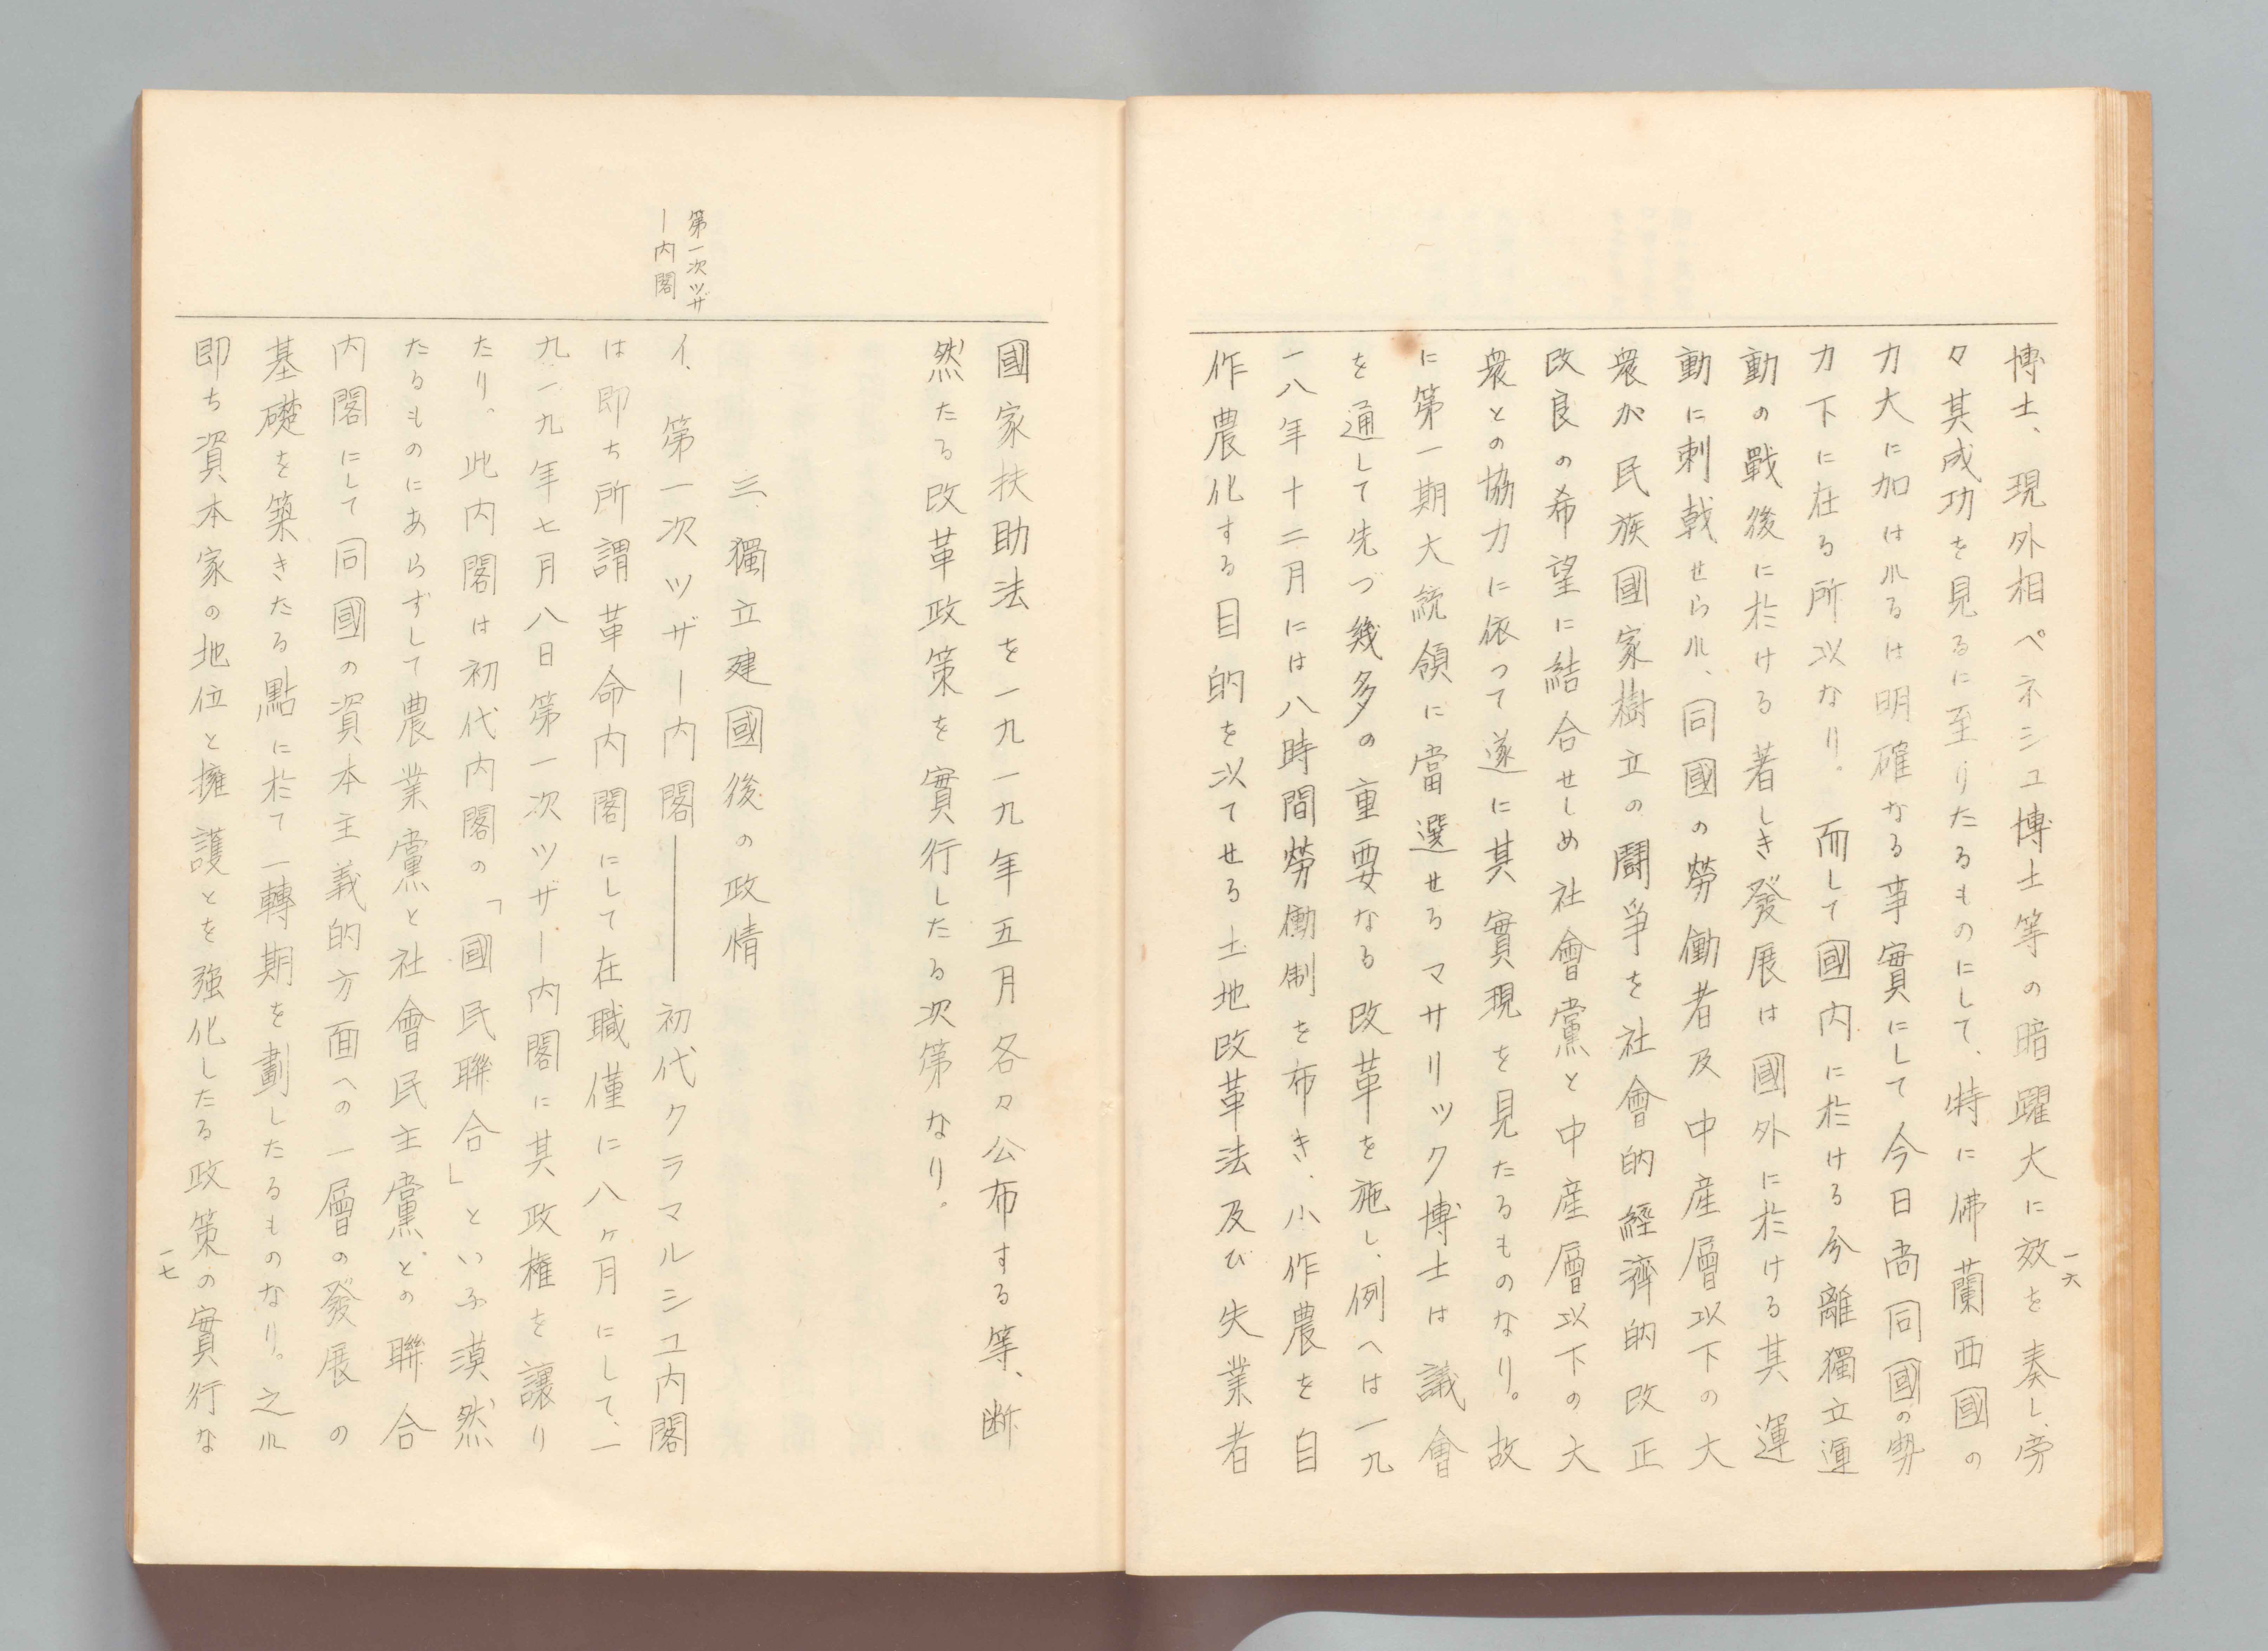 博士、現外相ペネシユ博士等の暗躍大に效を奏し、旁
々其成功を見るに至りたるものにして、特に佛蘭西國の
力大に加はれるは明確なる事實にして今日尚同國の勢
力下に在る所以なり。而して國内に於ける分離獨立運
動の戰後に於ける著しき發展は國外に於ける其運
動に刺戟せられ、同國の勞働者及中産層以下の大
衆が民族國家樹立の鬪爭を社會的經濟的改正
改良の希望に結合せしめ社會黨と中産層以下の大
衆との協力に依つて遂に其實現を見たるものなり。故
に第一期大統領に當選せるマサリツク博士は議會
を通して先づ幾多の重要なる改革を施し、例へは一九
一八年十二月には八時間勞働制を布き、小作農を自
作農化する目的を以てせる土地改革法及び失業者
一六
國家扶助法を一九一九年五月各々公布する等、断
然たる改革政策を實行したる次第なり。
三、獨立建國後の政情
第一次ツザ
ー内閣
イ、第一次ツザー内閣――初代クラマルシユ内閣
は即ち所謂革命内閣にして在職僅に八ヶ月にして、一
九一九年七月八日第一次ツザー内閣に其政権を讓り
たり。此内閣は初代内閣の「國民聯合」といふ漠然
たるものにあらずして農業黨と社會民主黨との聯合
内閣にして同國の資本主義的方面への一層の發展の
基礎を築きたる點に於て一轉期を劃したるものなり。之れ
即ち資本家の地位と擁護とを強化したる政策の實行な
一七